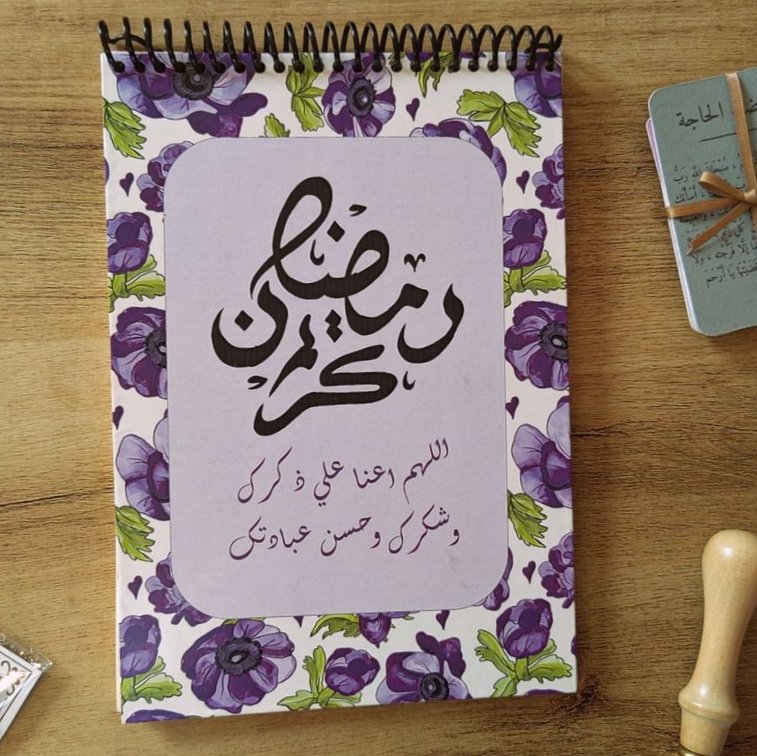 رمضان
كريم
اللهم اعنا علي ذكرك
وشكرك وحسن عبادتك
الحاجة